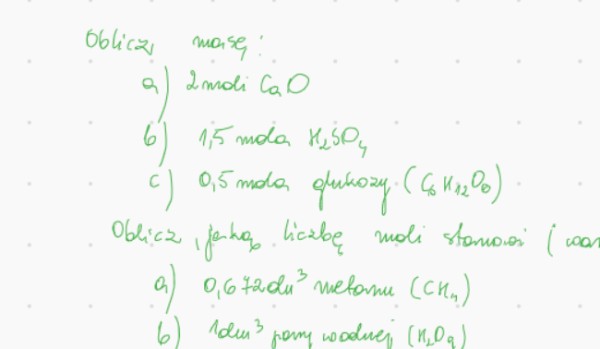 Oblicz masę:
a) 2 moli CaO
b) 1,5 mola H₂SO₄
c) 0,5 mola glukozy (C₆H₁₂O₆)
Oblicz, jaką liczbę moli stanowi (war
a) 0,672 dm³ metanu (CH₄)
b) 1 dm³ pary wodnej (H₂O g)